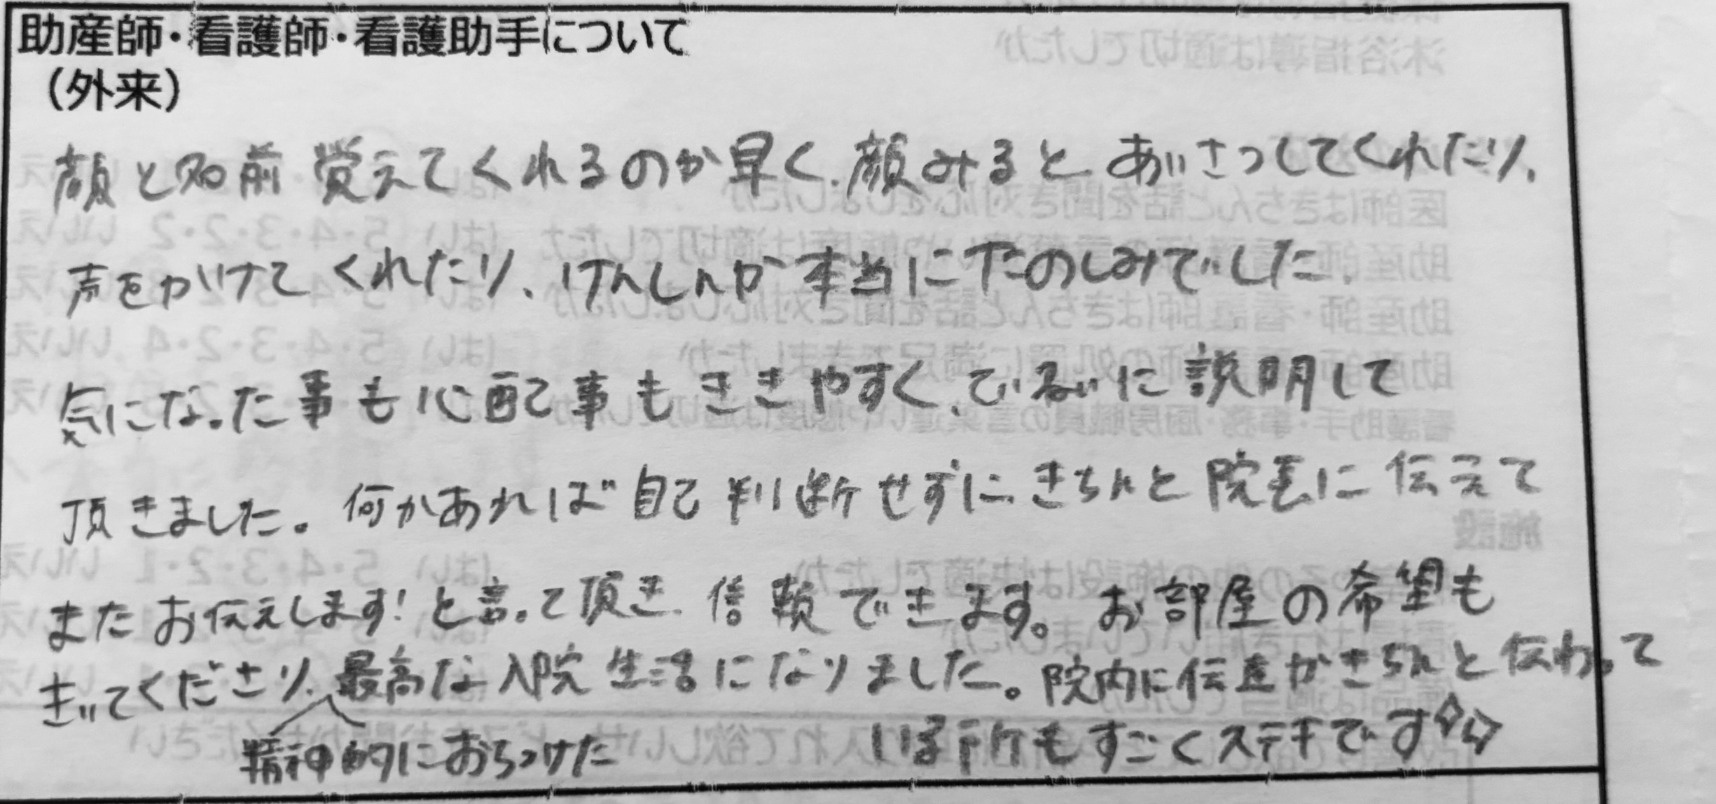 助産師・看護師・看護助手について
（外来）
顔と名前覚えてくれるのが早く、顔みるとあいさつしてくれたり、
声をかけてくれたり、けんしんが本当にたのしみでした。
気になった事も心配事もききやすく、ていねいに説明して
頂きました。何かあれば自己判断せずに、きちんと院長に伝えて
またお伝えします！と言って頂き、信頼できます。お部屋の希望も
きいてくださり、最高な入院生活になりました。院内に伝達がきちんと伝わって
精神的におちつけた
いる所もすごくステキです